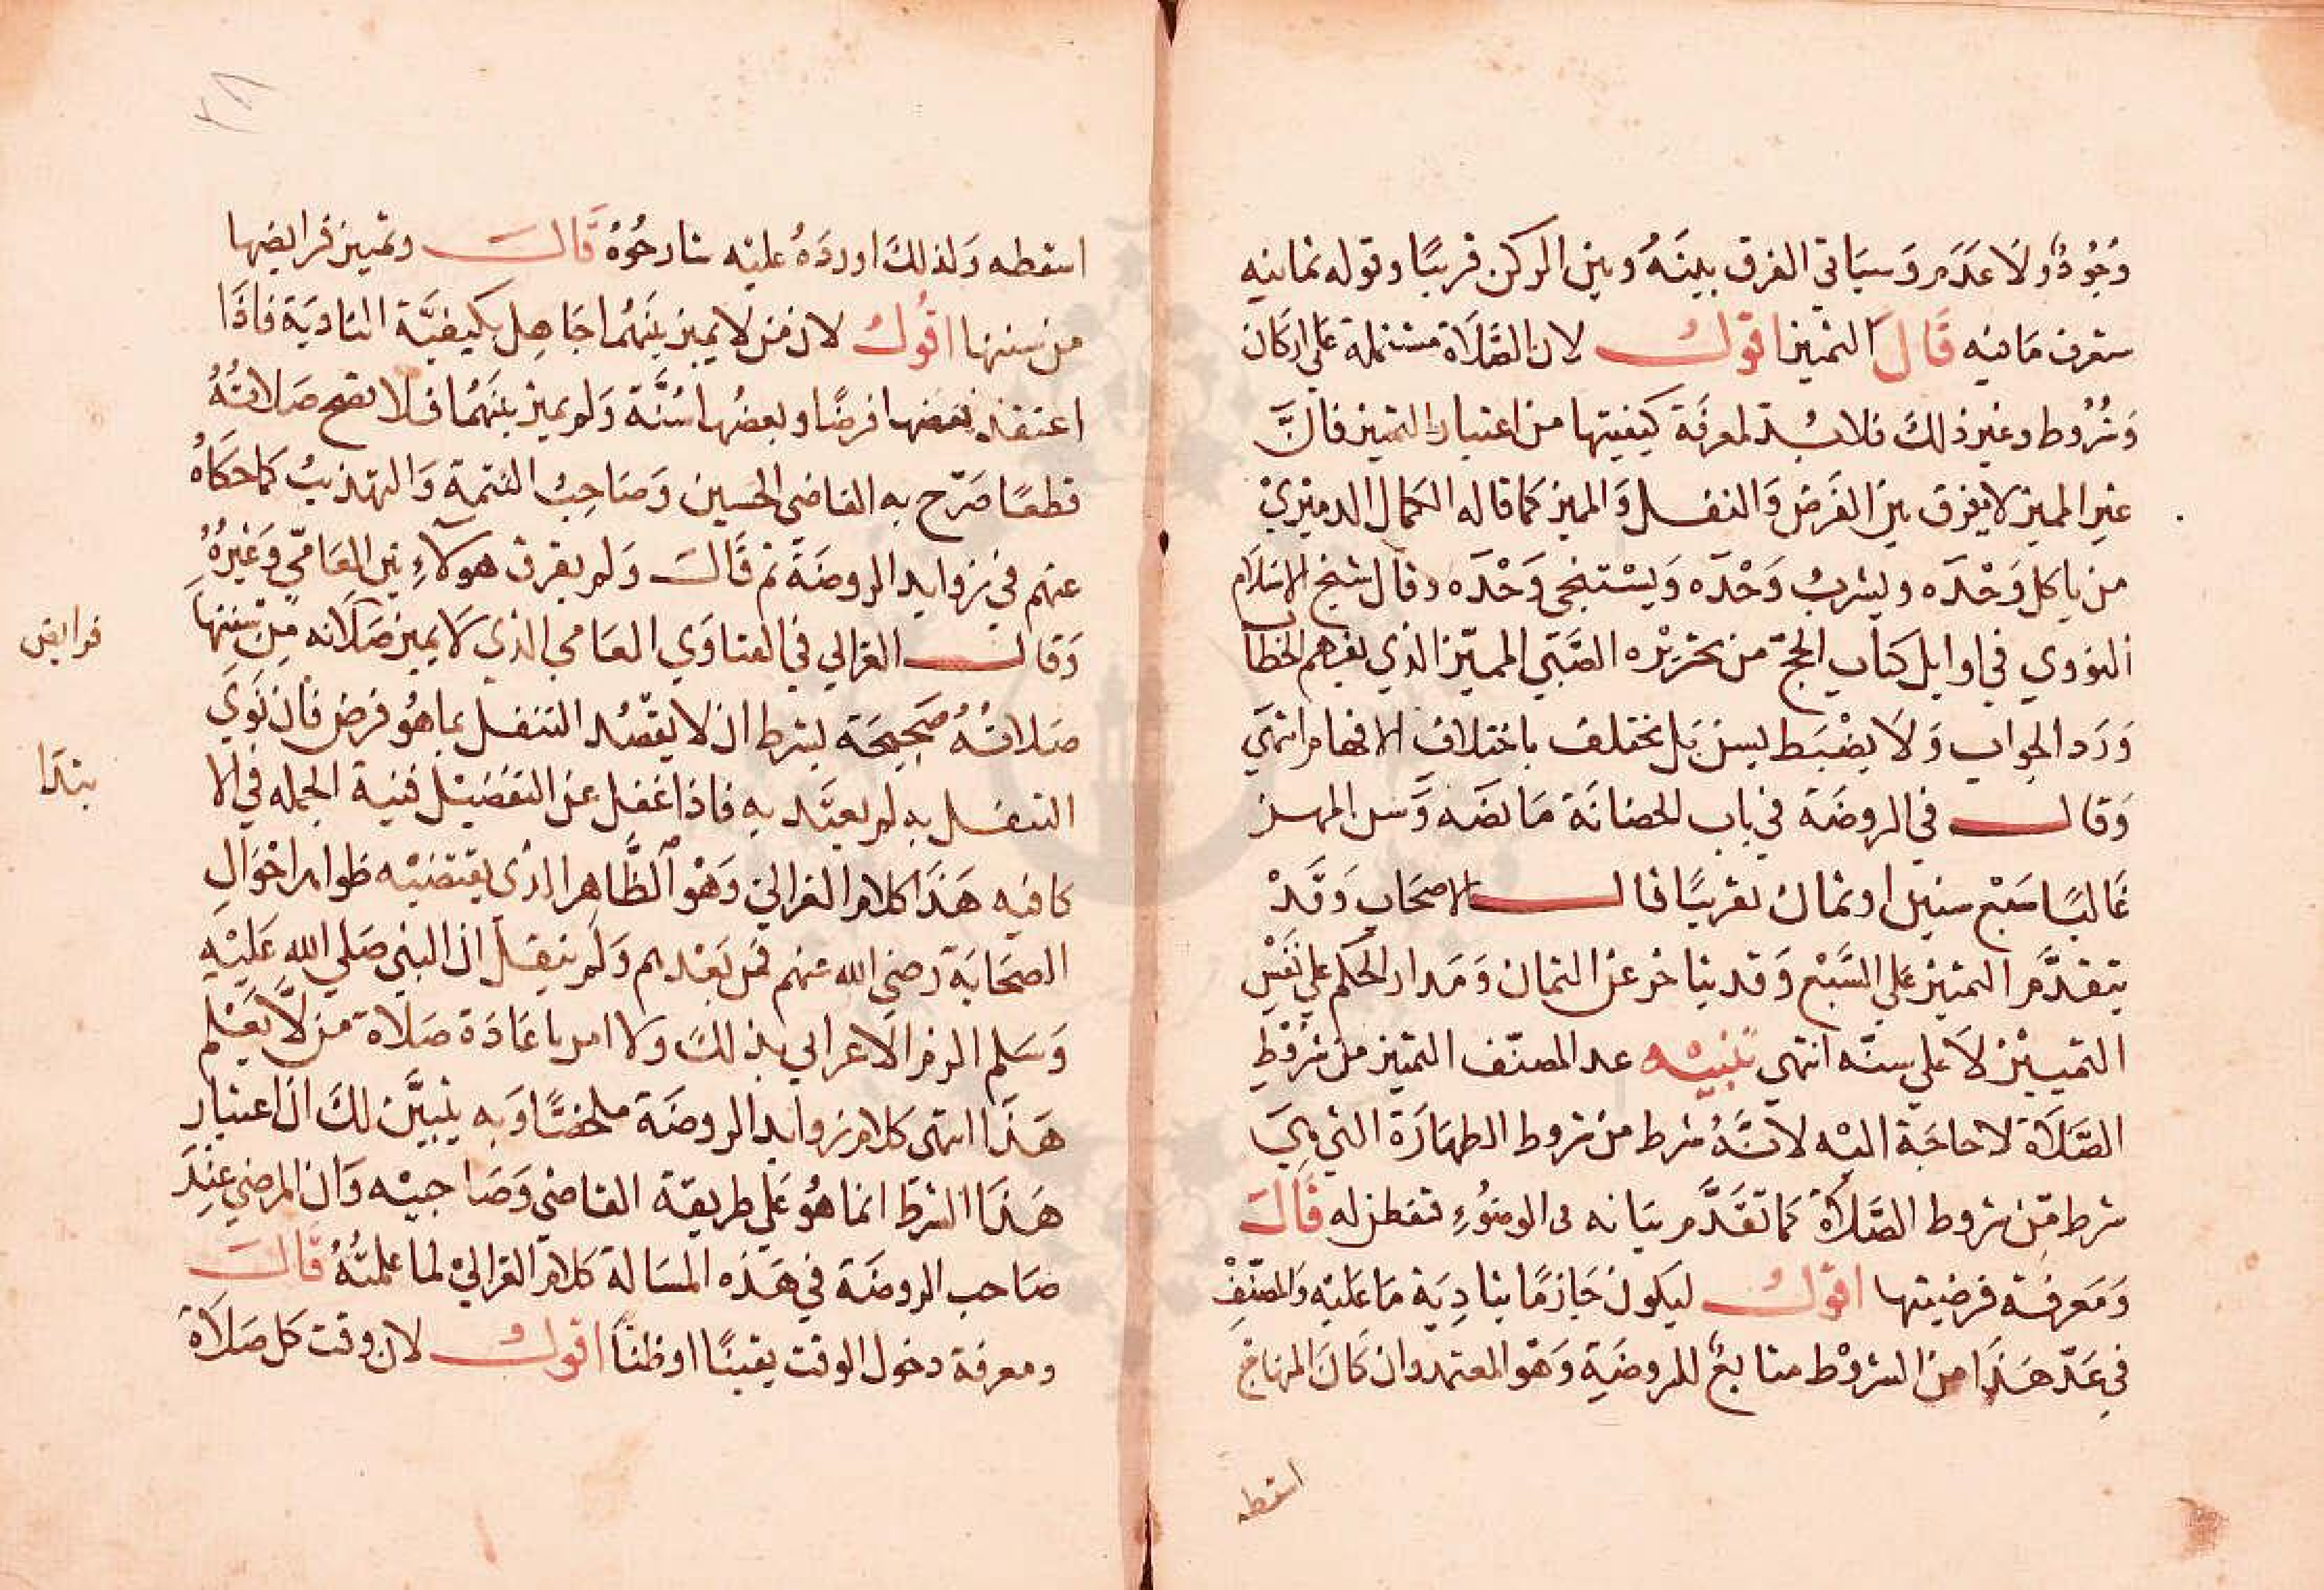 وُجُودٌ وَلَا عَدَم وَسيَاتي الفرق بينَهُ وبين الركن قريبًا وقوله ثمانيه
ستعرف مَا فيه قَالَ التميز اقولُ لان الصَّلَاة مشتملة عَلي اركان
وَشُرُوط وغير ذلكَ فلا بُدّ لمعرفَة كيفيتها من اعتبار التميز فانَّ
غير المميز لا يفرق بين الفَرض وَالنفل وَالمميز كما قاله الكمال الدميري
من ياكل وَحْدَه ويشربُ وَحْدَه وَيسْتنجي وَحْدَه وقال شيخ الاسْلَام
النووي في اوايل كتاب الحجّ من تحريْره الصَّبي المميّز الذي يفهم الخطاب
وَرَد الجواب وَلَا يضْبَط بسن بَل يختلف باختلاف الافهام انتهَي
وَقال في الروضَة في باب الحضانَة مَا نصَه وَسن المميز
غَالبًا سَبْع سنين او ثمان تقريبًا قال الاصحَاب وَقَدْ
يتقدَّم التميز عَلي السَّبْع وَقد يتاخر عن الثمان وَمَدار الحكم علي نفسِ
التمييْز لَا علي سنّه انتهي تنبيْه عد المصنّف التميز من شرُوْطِ
الصَّلَاة لا حاجَة اليْه لانَّهُ شرط من شروط الطهَارَة التي هِيَ
شرط مِّن شروط الصَّلَاة كما تَقَدَّم بيَانه في الوضُوْءِ تفطن له قَالَ
وَمَعرفة فرضيتها اقولُ ليَكون جَازمًا بتادِيَة مَا عَليْه وَالمصَنّفِ
في عَدّ هَذَا من الشروْط متابعٌ للروضَةِ وَهو المعتمد وان كَانَ المنهاج
اسقطه
٢٨
اسقطه وَلذلكَ اوردَهُ عليْه شارحُوْهُ قَالَ وتميز فرايضها
من سننها اقُولُ لان من لا يميز بينَهُما جَاهِل بكيفيَّة التاديَة فاذَا
اعتقد بعضها فرضًا وبعضُها سُنَّة وَلم يميز بينَهُمَا فلا تصح صَلاتُهُ
قطعًا صَرّح به القاضي الحسين وَصَاحِبُ التتمة وَالتهذيبُ كما حكَاهُ
عنهم في زوايد الروضَة ثم قَالَ وَلم يفرق هولاءِ بين العَامّي وَغيرُهُ
وَقال الغزالي في الفتاوَي العامي الذي لَا يميز صَلَاته مِن سُننها
فرايض
صَلاتُهُ صَحِيحَة بشرط ان لا يقصُد التنفل بما هُو فرض فان نَوَيَ
التنفل به لم يعتَّد به فاذا غفل عن التفضيْل فنية الجمله في الا
بتدا
كافيه هَذَا كلام الغزالي وَهُو الظَّاهِر الذي يقتضيْه ظواهر احْوَال
الصحَابَة رضي الله عنهم فمَن بَعْدهم وَلَم ينقلْ ان النبي صَلي الله عَليْهِ
وَسَلم الزم الاعرابي بذلكَ وَلا امر باعَادَة صَلَاة مَن لَّا يَعْلم
هَذَا انتهي كلام زوايد الروضَة ملخصًا وَبه يتبيَّن لكَ ان اعتبار
هَذَا الشرطَ انما هُو عَلي طريقة القاضي وَصَاحبيْه وَان المرضي عِنْدَ
صَاحب الروضَة في هَذه المسَالة كَلام الغزالي لما علمتُهُ قَالَ
ومعرفة دخول الوقت يقينًا او ظنًا اقولُ لان وقت كل صَلَاة